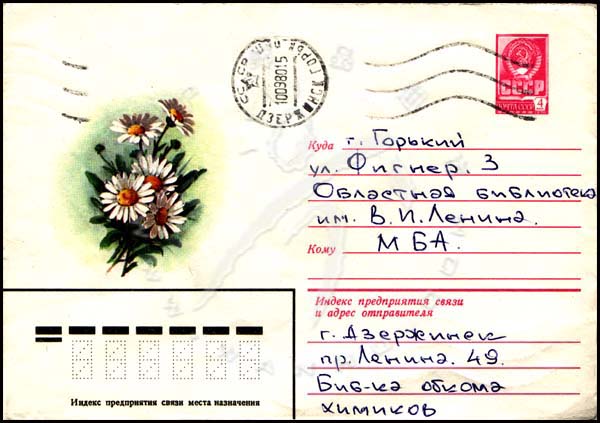 СССР ДЗЕРЖ ГОРЬК
10098015
СССР
ПОЧТА СССР 4
Куда г. Горький
ул. Фигнер. 3
Областная библиотека
им. В. И. Ленина.
Кому МБА.
Индекс предприятия связи
и адрес отправителя
г. Дзержинск
пр. Ленина. 49.
Биб-ка обкома
химиков
Индекс предприятия связи места назначения